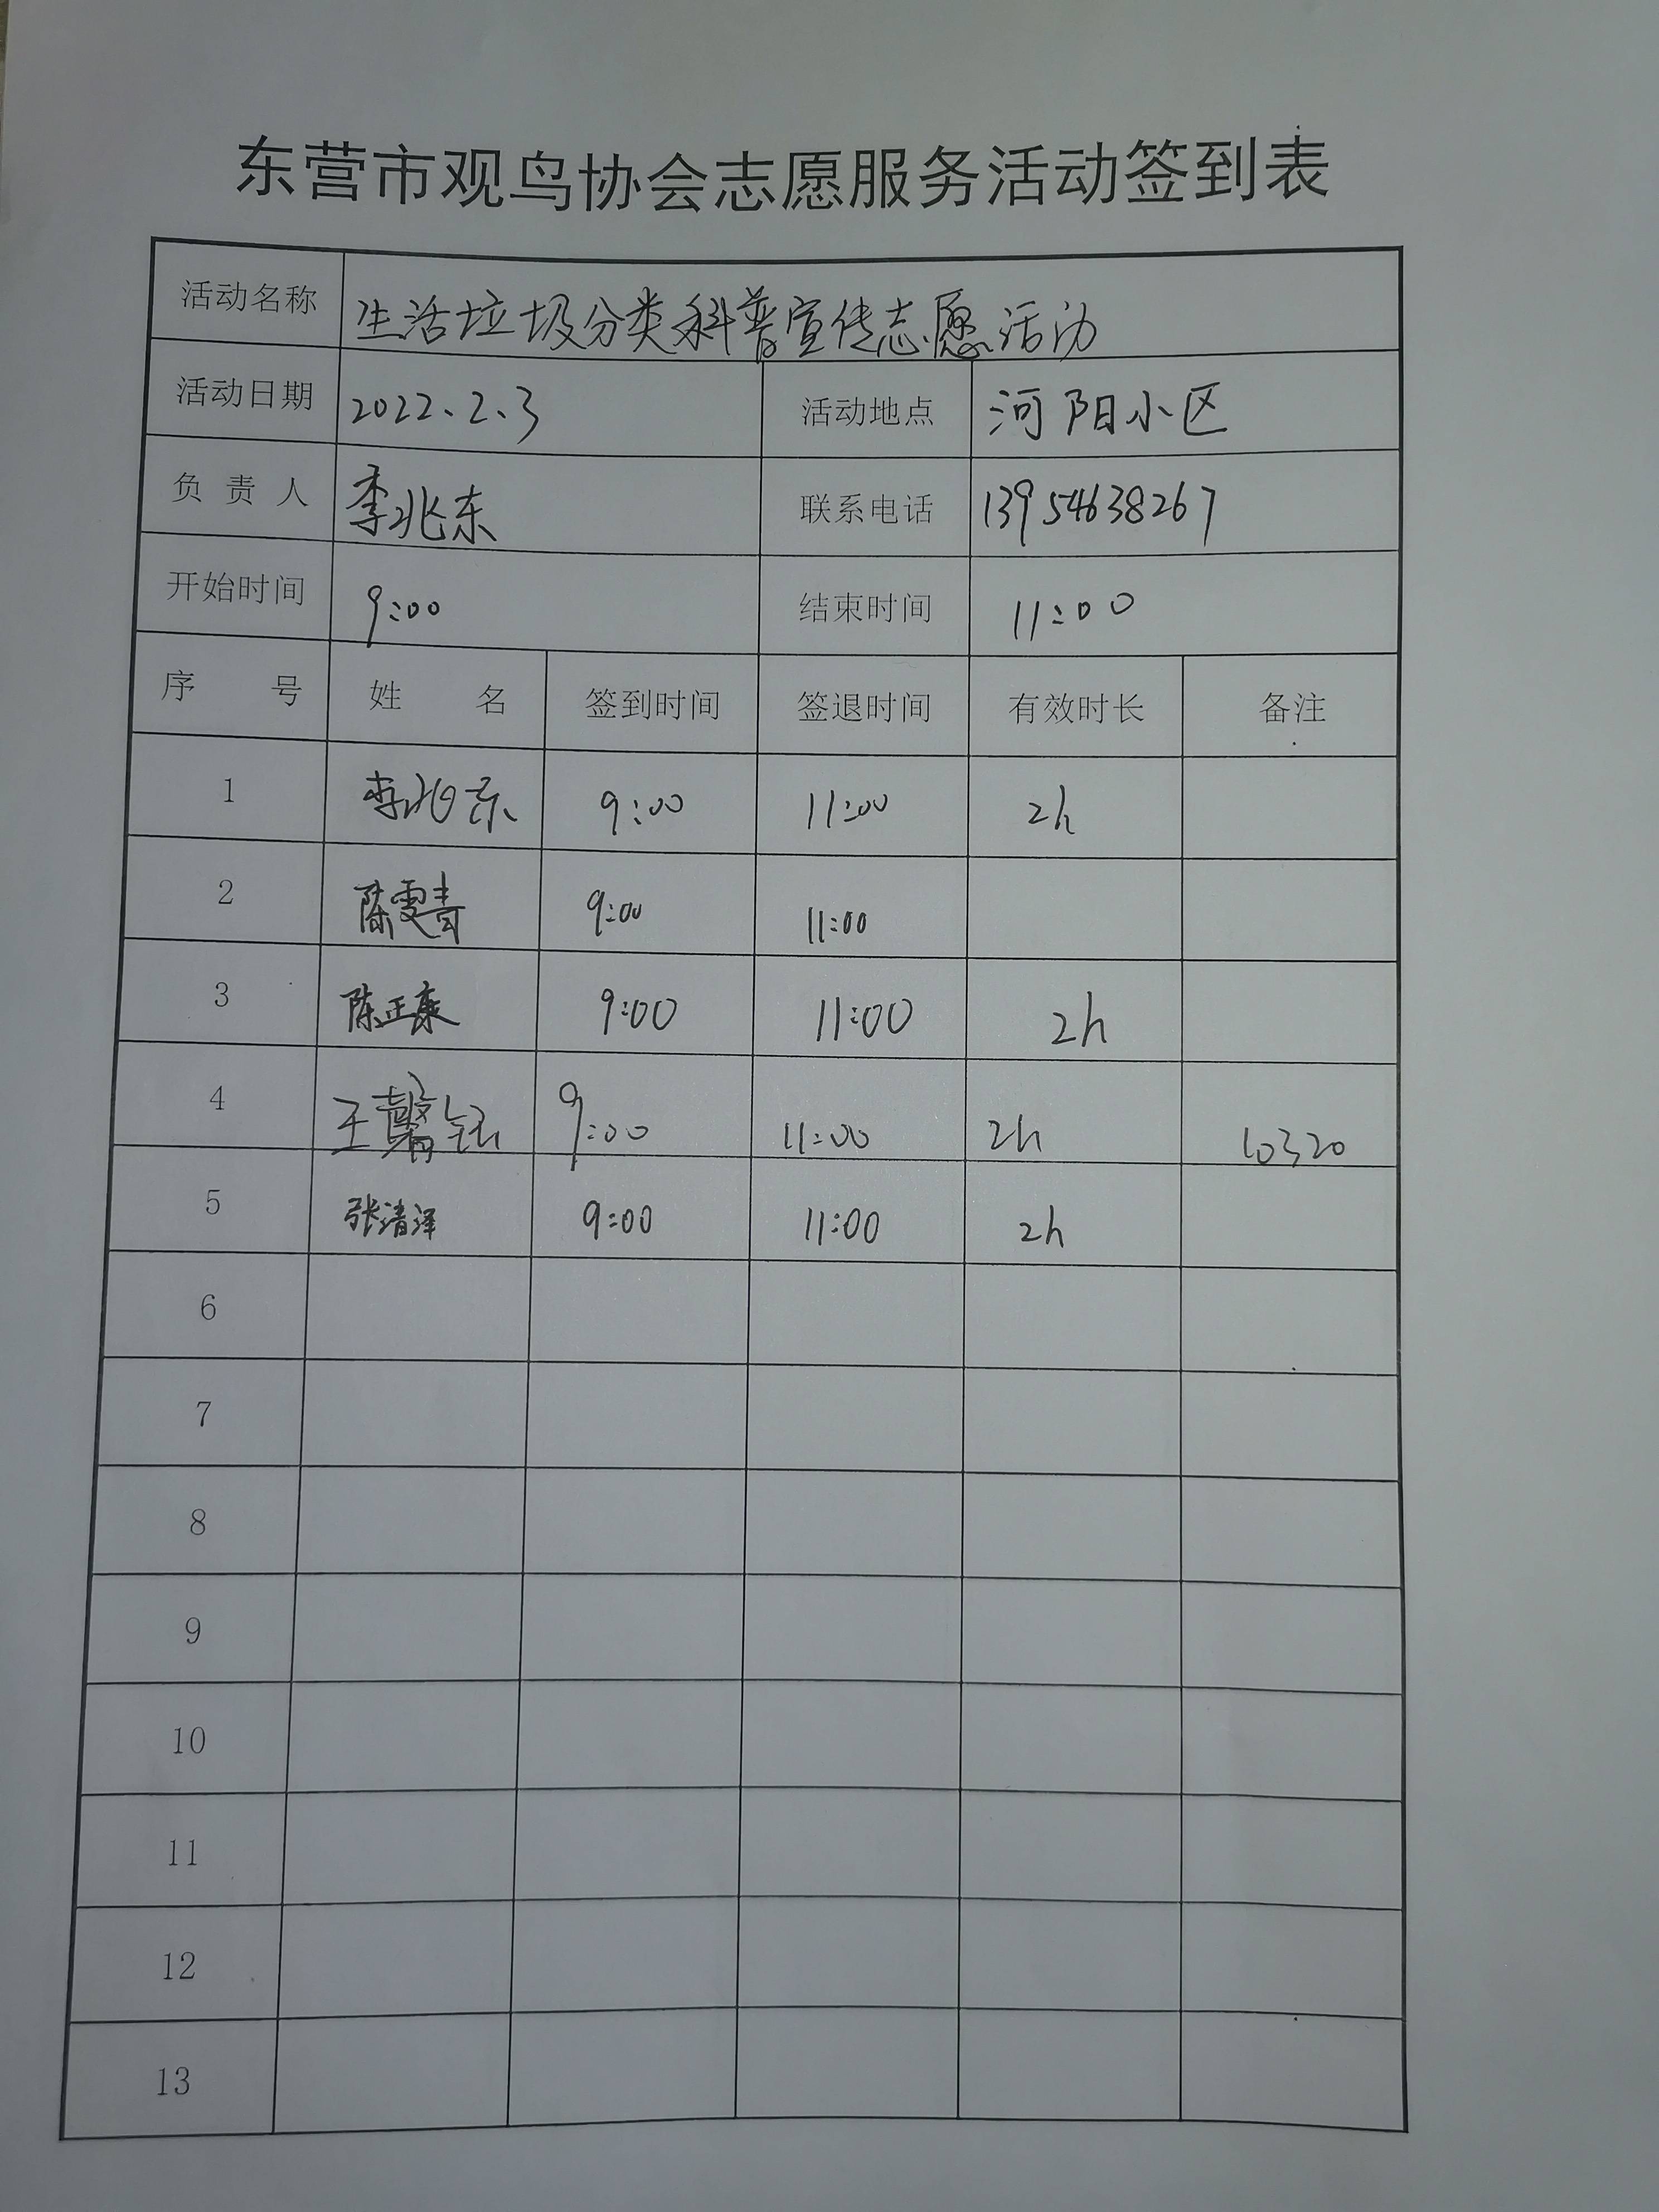 东营市观鸟协会志愿服务活动签到表
活动名称 生活垃圾分类科普宣传志愿活动
活动日期 2022、2、3 活动地点 河阳小区
负责人 李兆东 联系电话 13954638267
开始时间 9:00 结束时间 11:00
序号 姓名 签到时间 签退时间 有效时长 备注
1 李兆东 9:00 11:00 2h
2 陈雯青 9:00 11:00
3 陈正康 9:00 11:00 2h
4 王馨钰 9:00 11:00 2h 10320
5 张清泽 9:00 11:00 2h
6
7
8
9
10
11
12
13